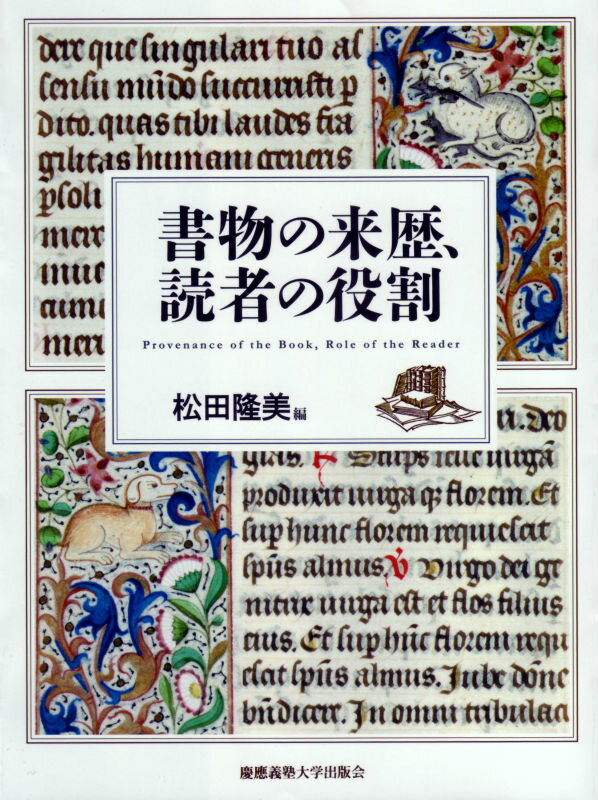 dere que singulari tuo as
sensu mūdo succurristi p
dito. quas tibi laudes fra
gilitas humani generis
psol
書物の来歴、
読者の役割
Provenance of the Book, Role of the Reader
松田隆美編
. Deo
Stirps iesse uirgā
produxit uirga qз florem. Et
sup hunc florem requiescit
spūs almus. V Virgo dei ge
nitrix uirga est et flos filius
eius. Et sup hūc florem requi
escit spūs almus. Iube dōne
bn̄dicere. In omni tribulaci
慶應義塾大学出版会